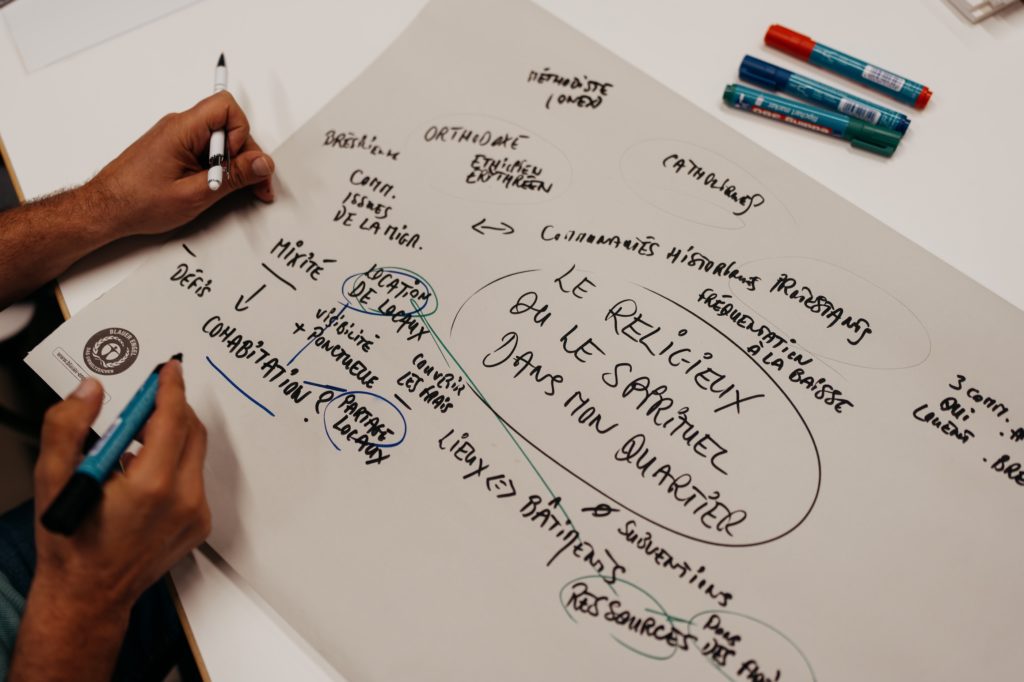 MÉTHODISTE
(ONEX)
BRÉSILIENNE
ORTHODOXE
ÉTHIOPIEN
ERYTHRÉEN
CATHOLIQUES
COMM.
ISSUES
DE LA MIGR.
COMMUNAUTÉS HISTORIQUES PROTESTANTS
FRÉQUENTATION
A LA BAISSE
DÉFIS
MIXITÉ
COHABITATION ?
LOCATION
DE LOCAUX
VISIBILITÉ
+ PONCTUELLE
COUVRIR
LES FRAIS
PARTAGE
LOCAUX
LE RELIGIEUX
OU LE SPIRITUEL
DANS MON QUARTIER
3 COMM.
QUI
LOUENT
LIEUX <=> BÂTIMENTS
Ø SUBVENTIONS
RESSOURCES
DONS
DES
BLAUER ENGEL